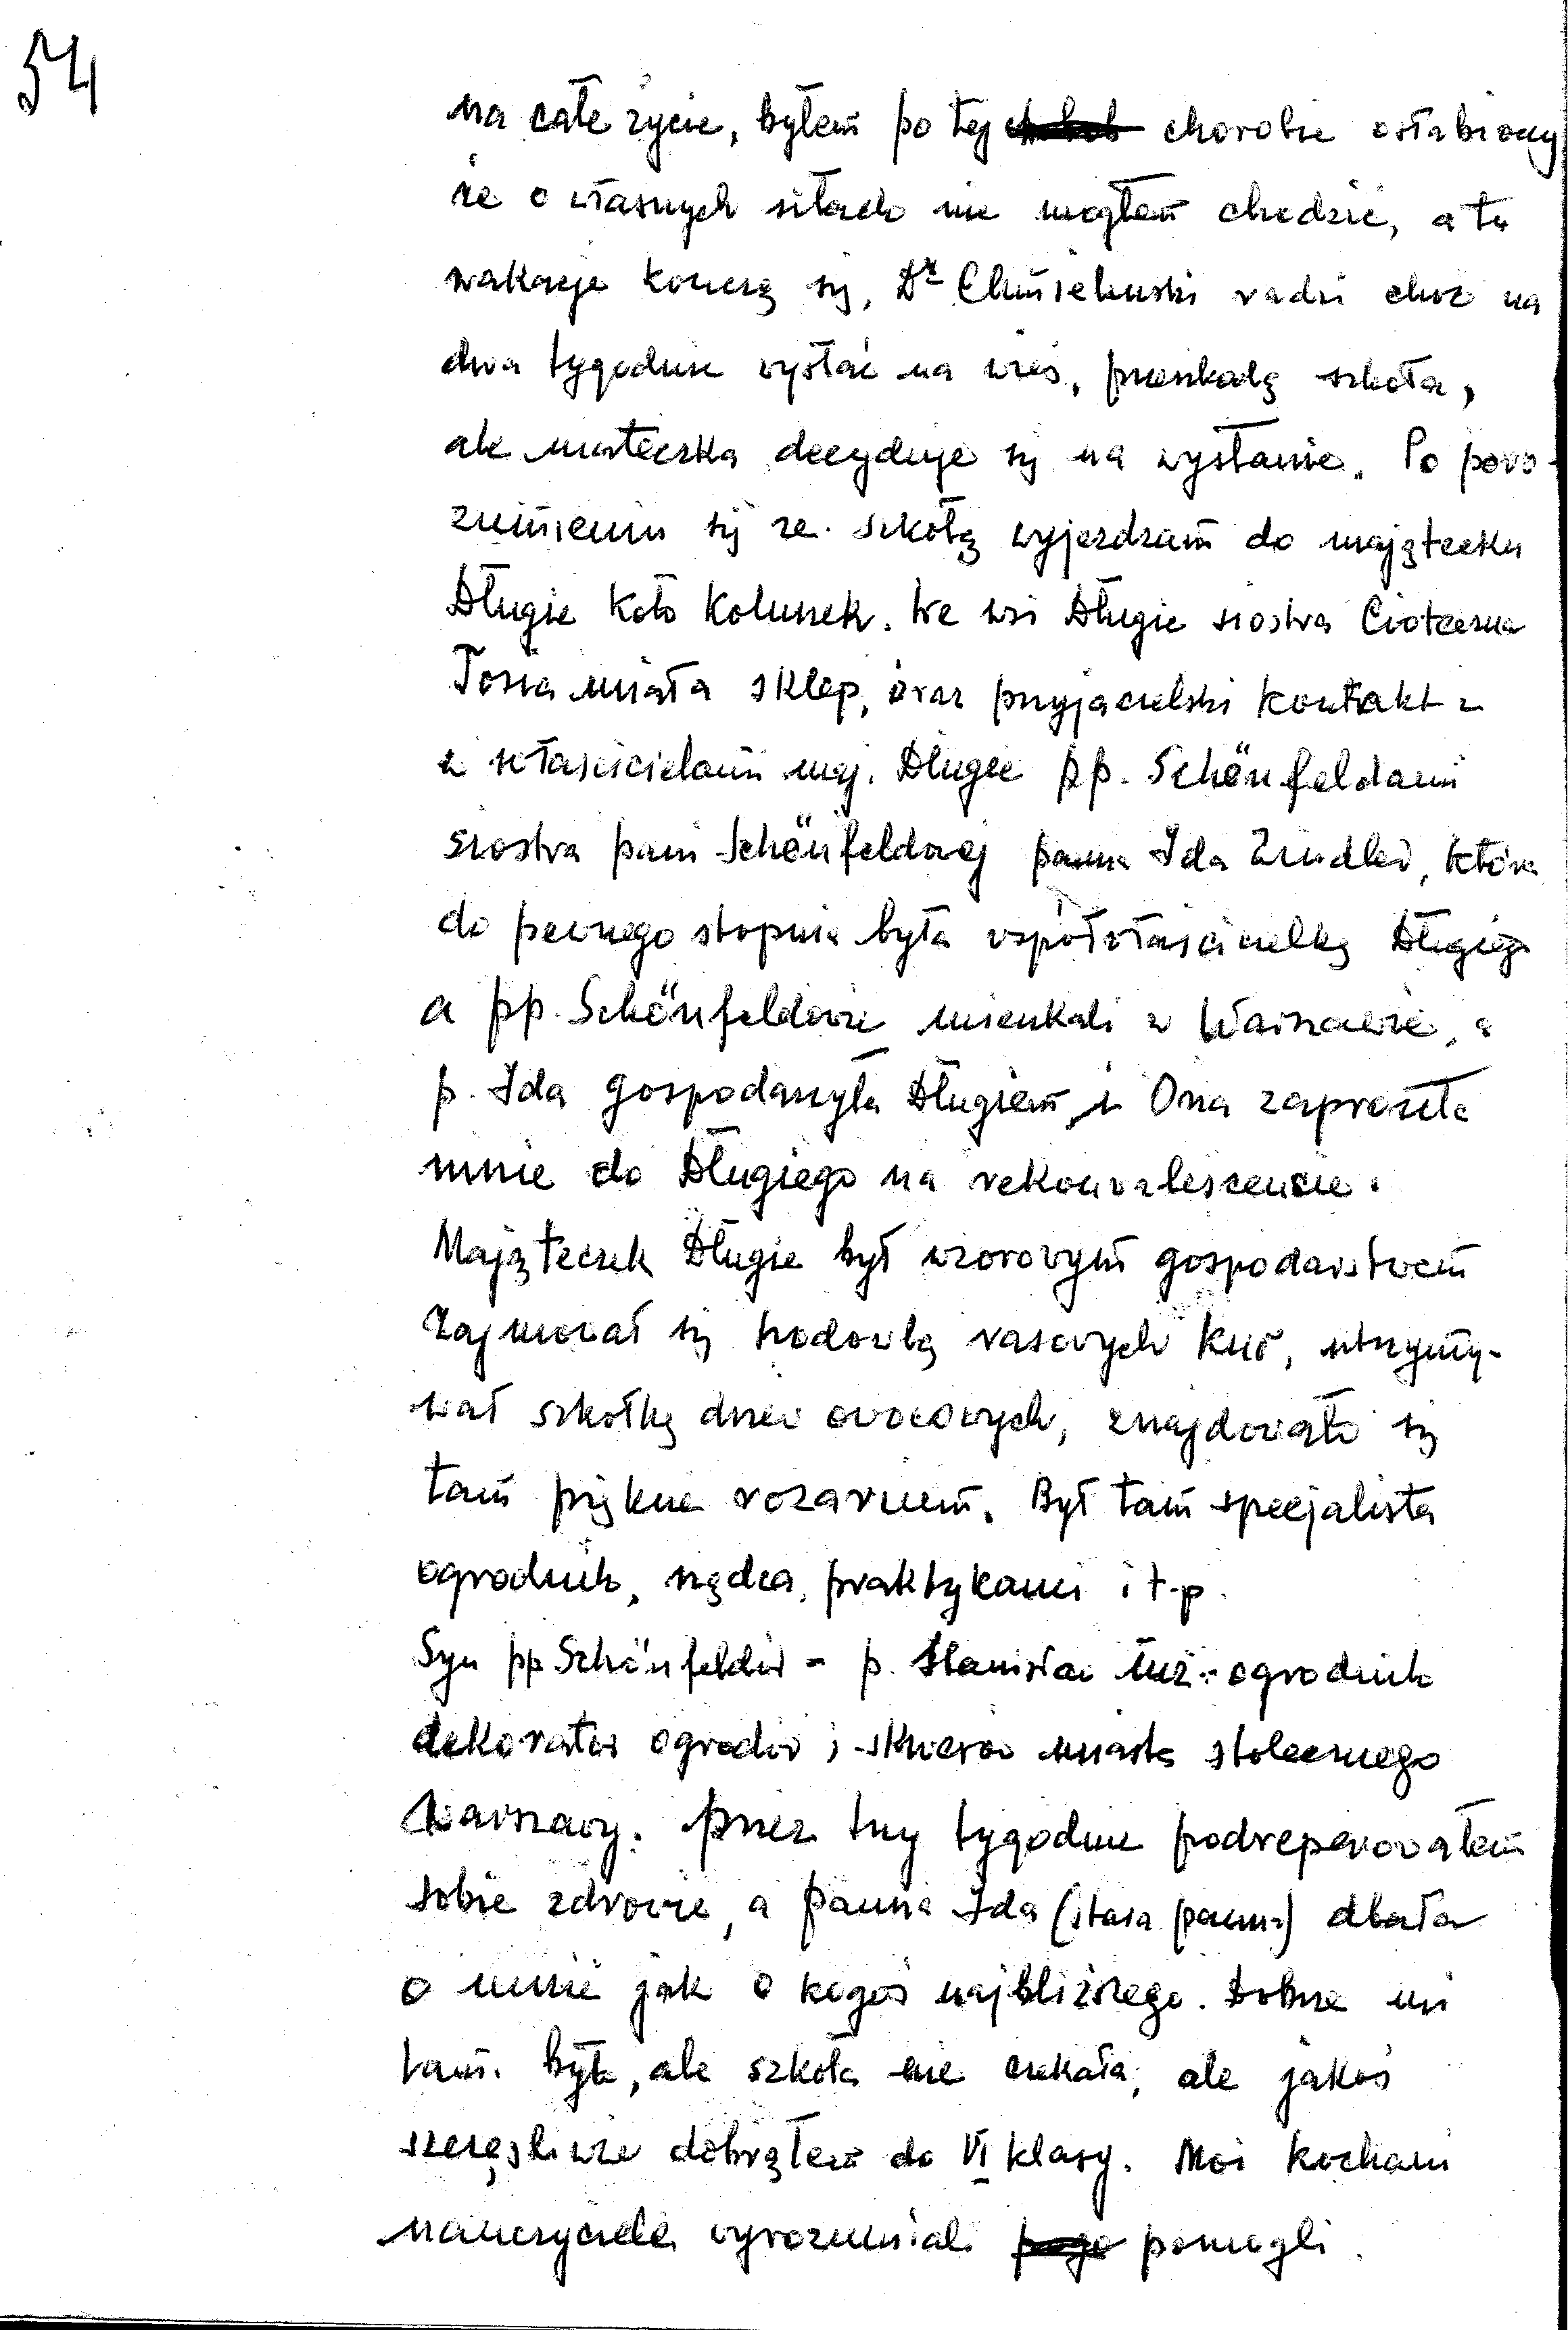 54
na całe życie, byłem po tej chorobie osłabiony
że o własnych siłach nie mogłem chodzić, a tu
wakacje kończą się, Dr Chmielewski radzi choć na
dwa tygodnie wysłać na wieś, przeszkodą szkoła,
ale mateczka decyduje się na wysłanie. Po poro-
zumieniu się ze szkołą wyjeżdżam do majątecku
Długie koło Koluszek. We wsi Długie siostra Cioteczna
Tosia miała sklep, oraz przyjacielski kontakt z
z właścicielami maj. Długie pp. Schönfeldami
siostra pani Schönfeldowej panna Ida która
do pewnego stopnia była współwłaścicielką Długiego
a pp. Schönfeldowie mieszkali w Warszawie, a
p. Ida gospodarzyła Długiem, i Ona zaprosiła
mnie do Długiego na rekonwalescencie.
Mająteczek Długie był wzorowym gospodarstwem
zajmował się hodowlą rasowych kur, utrzymy-
wał szkółkę drzew owocowych, znajdowało się
tam piękne rozarium. Był tam specjalista
ogrodnik, rządca, praktykanci i t.p.
Syn pp Schönfeldów - p. Stanisław inż. ogrodnik
dekorator ogrodów i skwerów miasta stołecznego
Warszawy. Przez trzy tygodnie podreperowałem
sobie zdrowie, a panna Ida (stara panna) dbała
o mnie jak o kogoś najbliższego. Dobrze mi
tam było, ale szkoła nie czekała, ale jakoś
szczęśliwie dobrnąłem do VI klasy. Moi kochani
nauczyciele wyrozumiali pomogli.